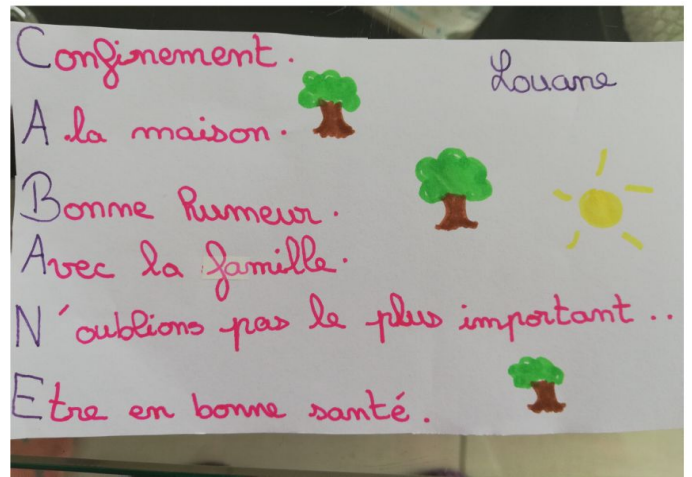 Confinement.
Louane
A la maison.
Bonne humeur.
Avec la famille.
N'oublions pas le plus important..
Etre en bonne santé.